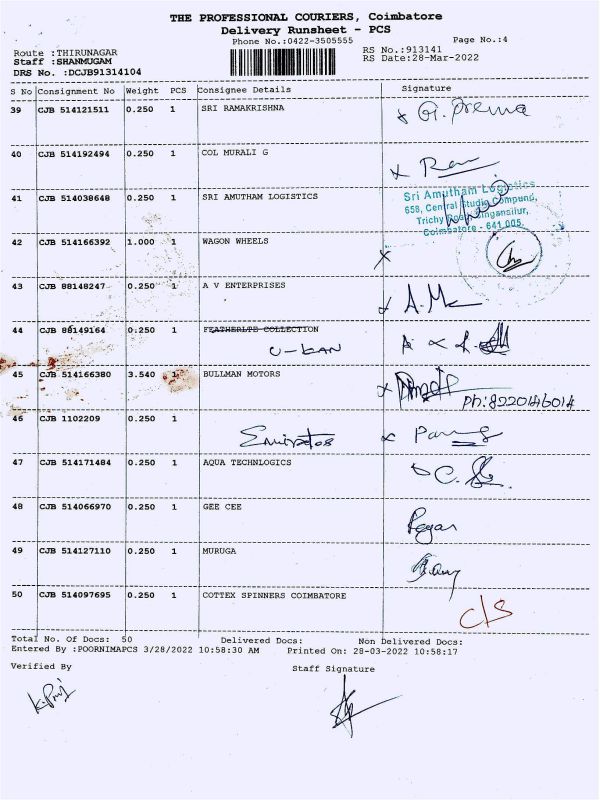 THE PROFESSIONAL COURIERS, Coimbatore
Delivery Runsheet - PCS
Phone No.:0422-3505555 Page No.:4
Route :THIRUNAGAR RS No.:913141
Staff :SHANMUGAM RS Date:28-Mar-2022
DRS No. :DCJB91314104
S No Consignment No Weight PCS Consignee Details Signature
39 CJB 514121511 0.250 1 SRI RAMAKRISHNA G. Prema
40 CJB 514192494 0.250 1 COL MURALI G
41 CJB 514038648 0.250 1 SRI AMUTHAM LOGISTICS
Sri Amutham Logistics
658, Central Studio Compund,
Trichy Road, Singansilur,
Coimbatore - 641 005.
42 CJB 514166392 1.000 1 WAGON WHEELS
43 CJB 88148247 0.250 1 A V ENTERPRISES
44 CJB 88149164 0.250 1 FEATHERLTB COLLECTION
U-KAN
45 CJB 514166380 3.540 1 BULLMAN MOTORS
Ph:8220146014
46 CJB 1102209 0.250 1
Emirates
47 CJB 514171484 0.250 1 AQUA TECHNLOGICS
48 CJB 514066970 0.250 1 GEE CEE
49 CJB 514127110 0.250 1 MURUGA
50 CJB 514097695 0.250 1 COTTEX SPINNERS COIMBATORE
C/S
Total No. Of Docs: 50 Delivered Docs: Non Delivered Docs:
Entered By :POORNIMAPCS 3/28/2022 10:58:30 AM Printed On: 28-03-2022 10:58:17
Verified By Staff Signature